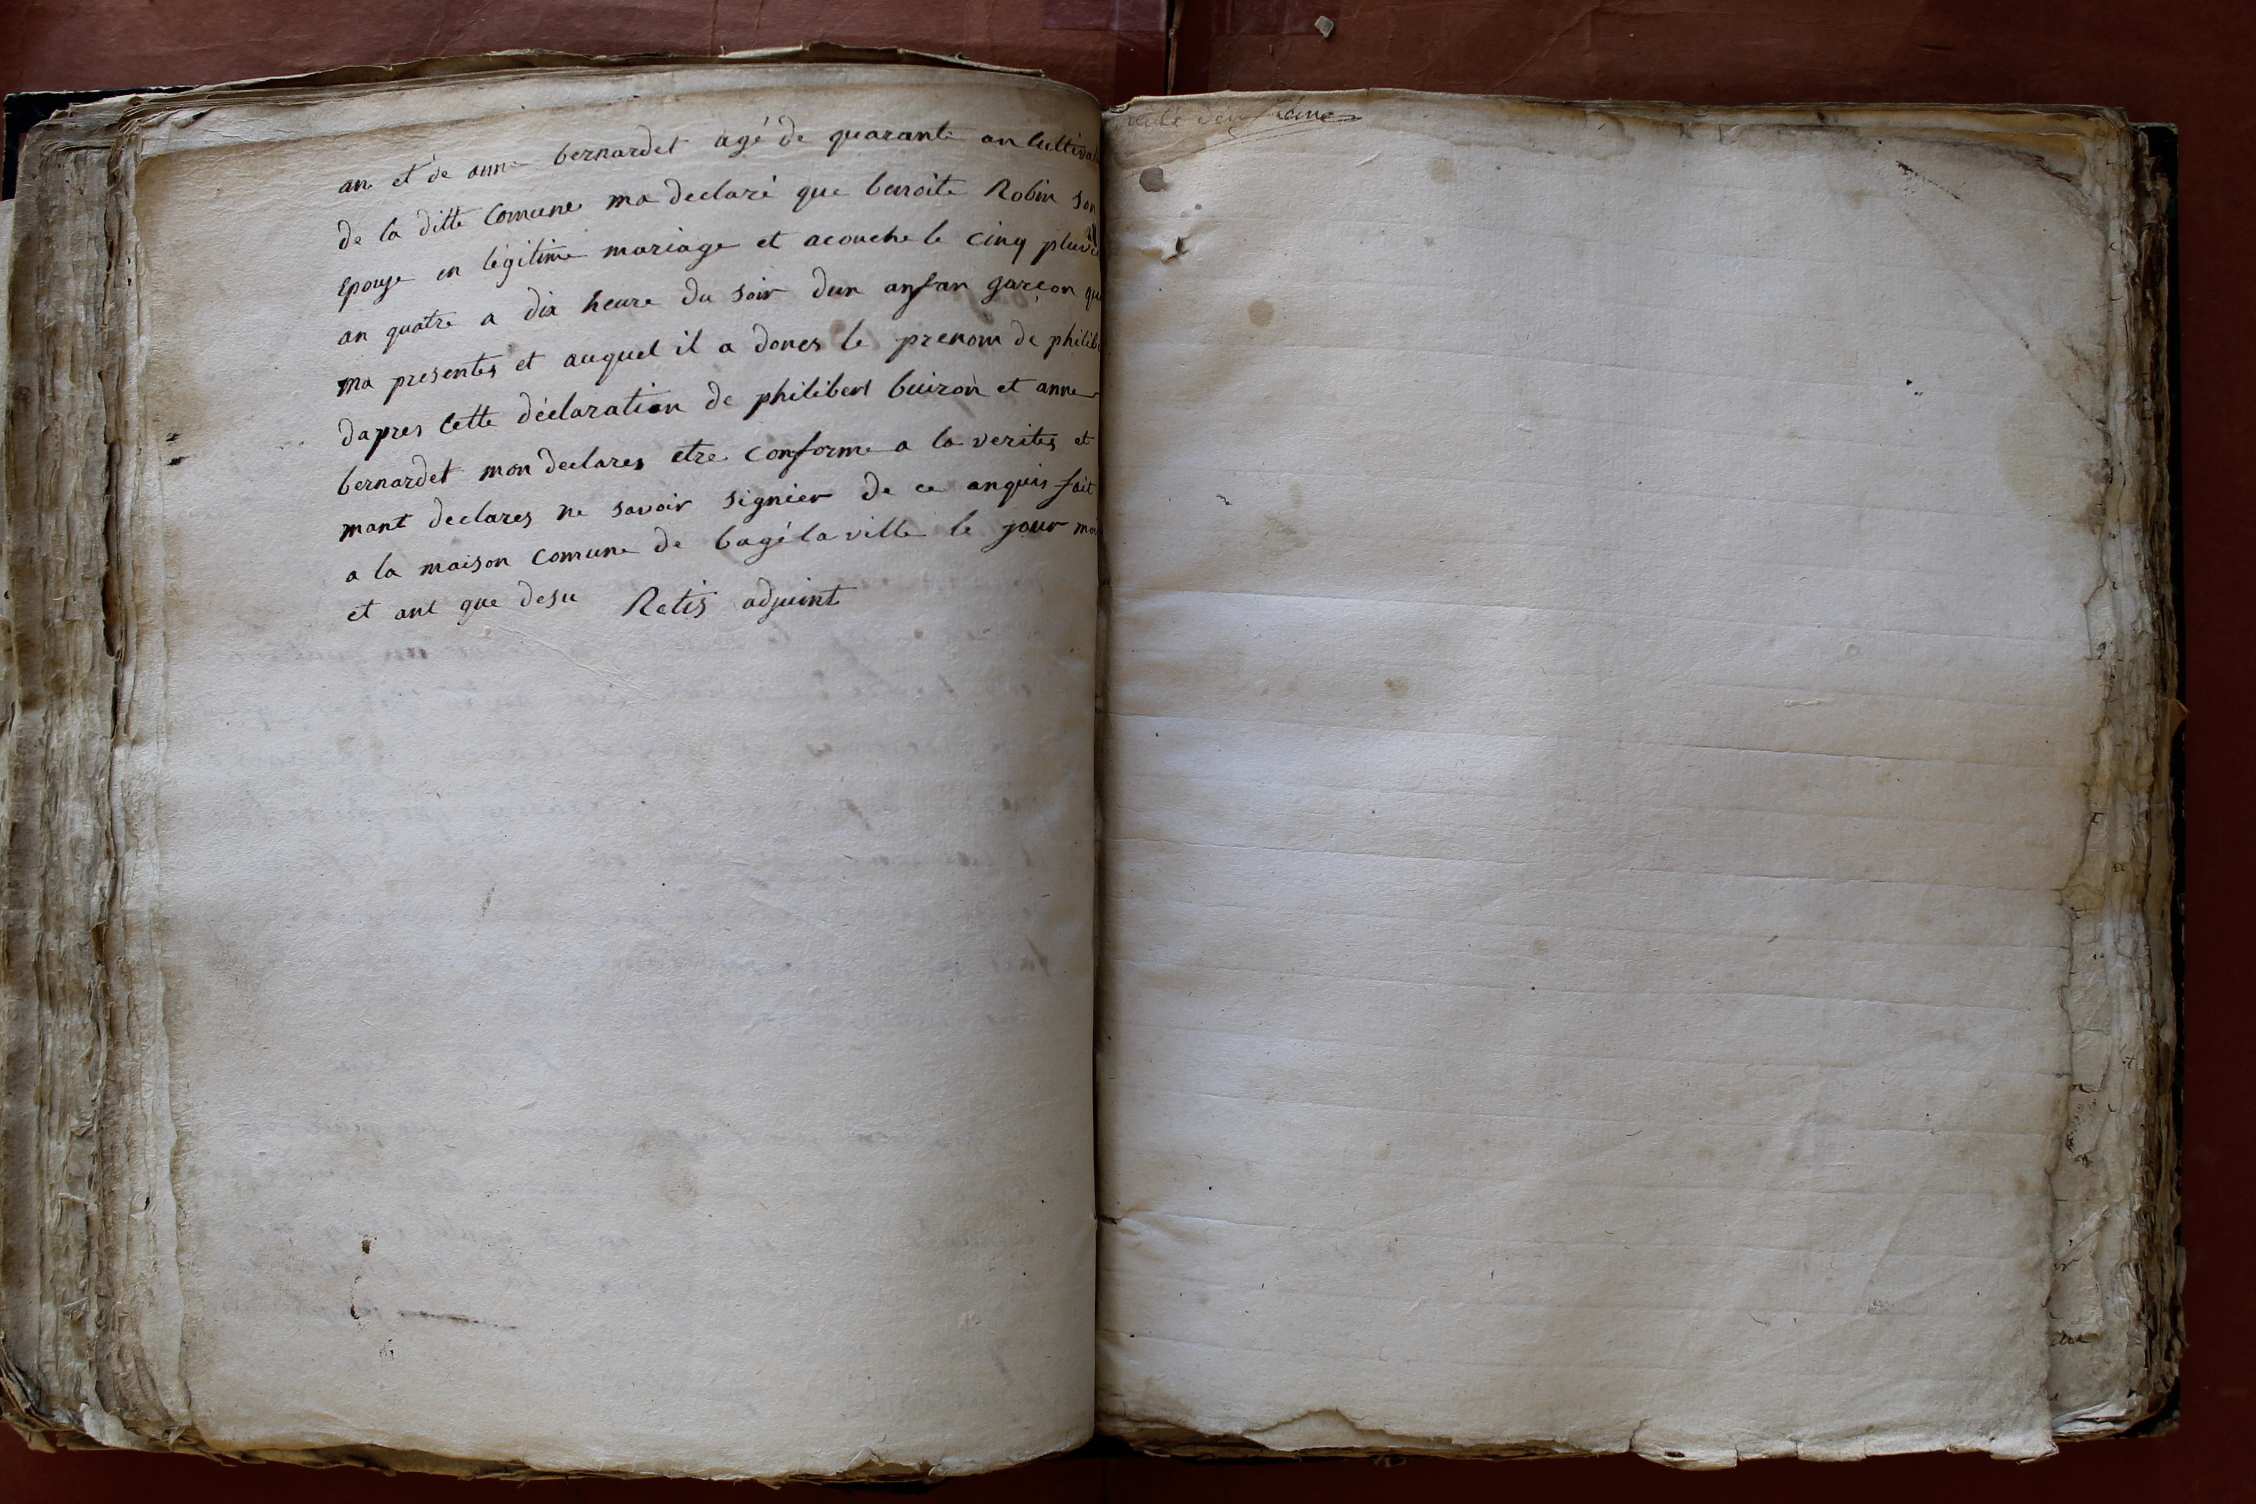 an et de anne bernardet agé de quarante an Cultiva
de la ditte Comune ma declaré que benoite Robin son
epouse en légitime mariage et acouche le cinq pluvi
an quatre a dix heure du soir dun anfan garçon qu
ma presentes et auquel il a dones le prenom de philib
dapres Cette déclaration de philibert buiron et anne
bernardet mon declares etre Conforme a la verites et
mant declares ne savoir signier de ce anquis fait
a la maison comune de bagé la ville le jour mo
et ant que desu Retis adjoint